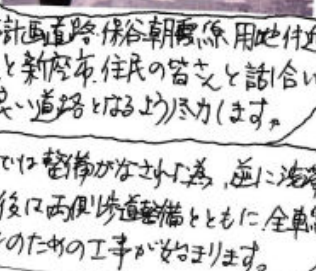 計画道路 保谷朝霞線 用地付近
と新座市住民の皆さんと話合い
良い道路となるよう尽力します。
では整備がなされた為、逆に渋滞
後は両側歩道整備とともに、全車線
のための工事が始まります。